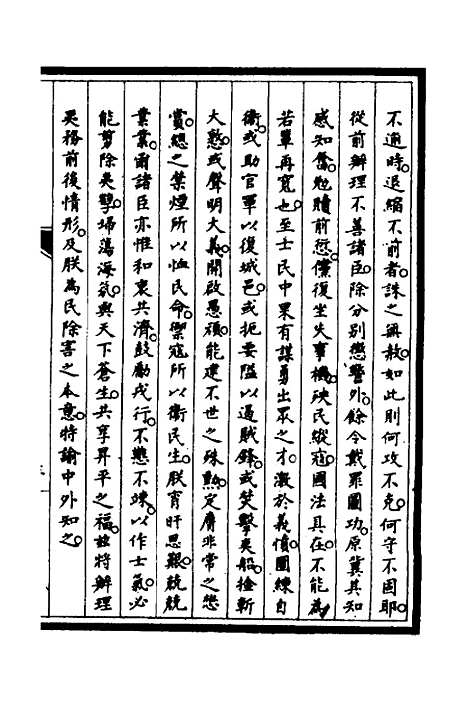 不通時退縮不前者誅之無赦如此則何攻不克何守不固耶
從前辦理不善諸臣除分別懲警外餘令戴罪圖功原冀其知
感知奮勉贖前愆儻復坐失事機殃民縱寇國法具在不能為
若輩再寬也至士民中果有謀勇出眾之才激於義憤團練自
衛或助官軍以復城邑或扼要隘以遏賊鋒或焚擊夷船擒斬
大憝或聲明大義開啟愚頑能建不世之殊勲定膺非常之懋
賞總之禁煙所以恤民命禦寇所以衛民生朕宵旰思艱兢兢
業業爾諸臣亦惟和衷共濟鼓勵戎行不戁不竦以作士氣必
能剪除夷孽埽蕩海氛與天下蒼生共享昇平之福茲特將辦理
夷務前後情形及朕為民除害之本意特諭中外知之